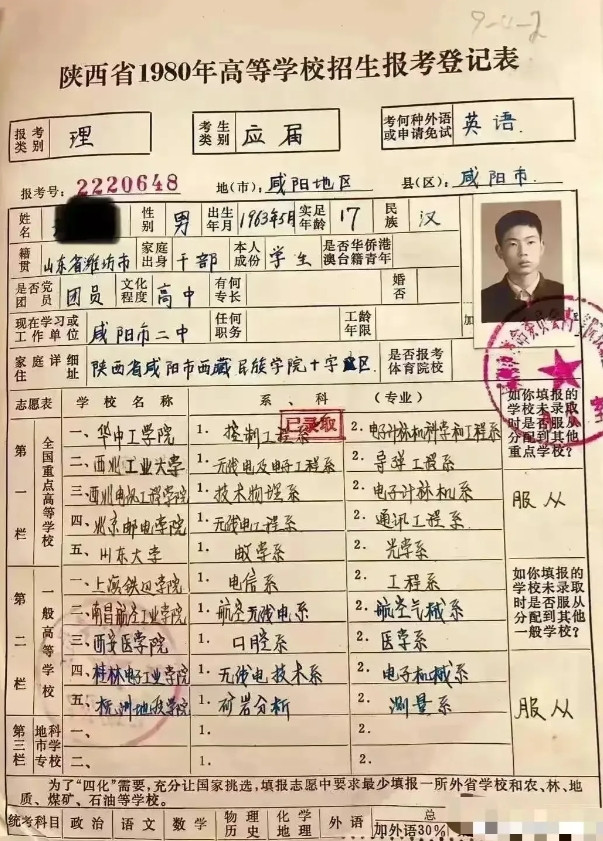 9-4-2
陕西省1980年高等学校招生报考登记表
报考类别 理 考生类别 应届 考何种外语或申请免试 英语.
报考号: 2220648 地(市): 咸阳地区 县(区): 咸阳市.
姓名 性别 男 出生年月 1963年5月 实足年龄 17 民族 汉
籍贯 山东省潍坊市 家庭出身 干部 本人成份 学生 是否华侨港澳台籍青年
是否党团员 团员 文化程度 高中 有何专长 婚否
现在学习或工作单位 咸阳市二中 任何职务 工龄年限 加
家庭详细住址 陕西省咸阳市西藏民族学院十字区 是否报考体育院校
志愿表 学校名称 系、科 (专业) 如你填报的学校未录取时是否服从分配到其他重点学校?
已录取
第一栏 全国重点高等学校
一、华中工学院 1. 控制工程系 2. 电子计标机科学和工程系
二、西北工业大学 1. 无线电及电子工程系 2. 导弹工程系
三、西北电讯工程学院 1. 技术物理系 2. 电子计标机系 服从
四、北京邮电学院 1. 无线电工程系 2. 通讯工程系
五、山东大学 1. 数学系 2. 光学系
第二栏 一般高等学校
一、上海铁道学院 1. 电信系 2. 工程系 如你填报的学校未录取时是否服从分配到其他一般学校?
二、南昌航空工业学院 1. 航空无线电系 2. 航空气械系
三、西安医学院 1. 口腔系 2. 医学系
四、桂林电子工业学院 1. 无线电技术系 2. 电子机械系 服从
五、杭州地质学院 1. 矿岩分析 2. 测量系
第三栏 地市科学专校
一、 1. 2.
二、 1. 2.
为了“四化”需要,充分让国家挑选,填报志愿中要求最少填报一所外省学校和农、林、地
质、煤矿、石油等学校。
统考科目 政治 语文 数学 物理历史 化学地理 外语 总 加外语30%